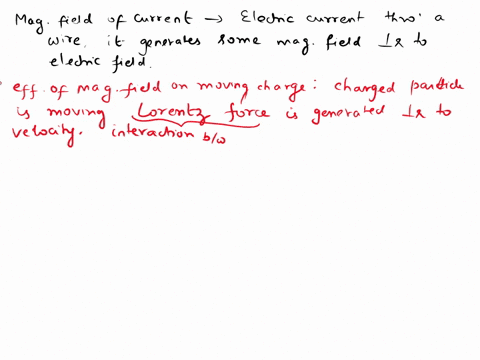 Mag. field of current → Electric current thro: a
wire, it generates some mag. field ⊥r to
electric field.
eff. of mag. field on moving charge: charged particle
is moving Lorentz force is generated ⊥r to
velocity. interaction b/w